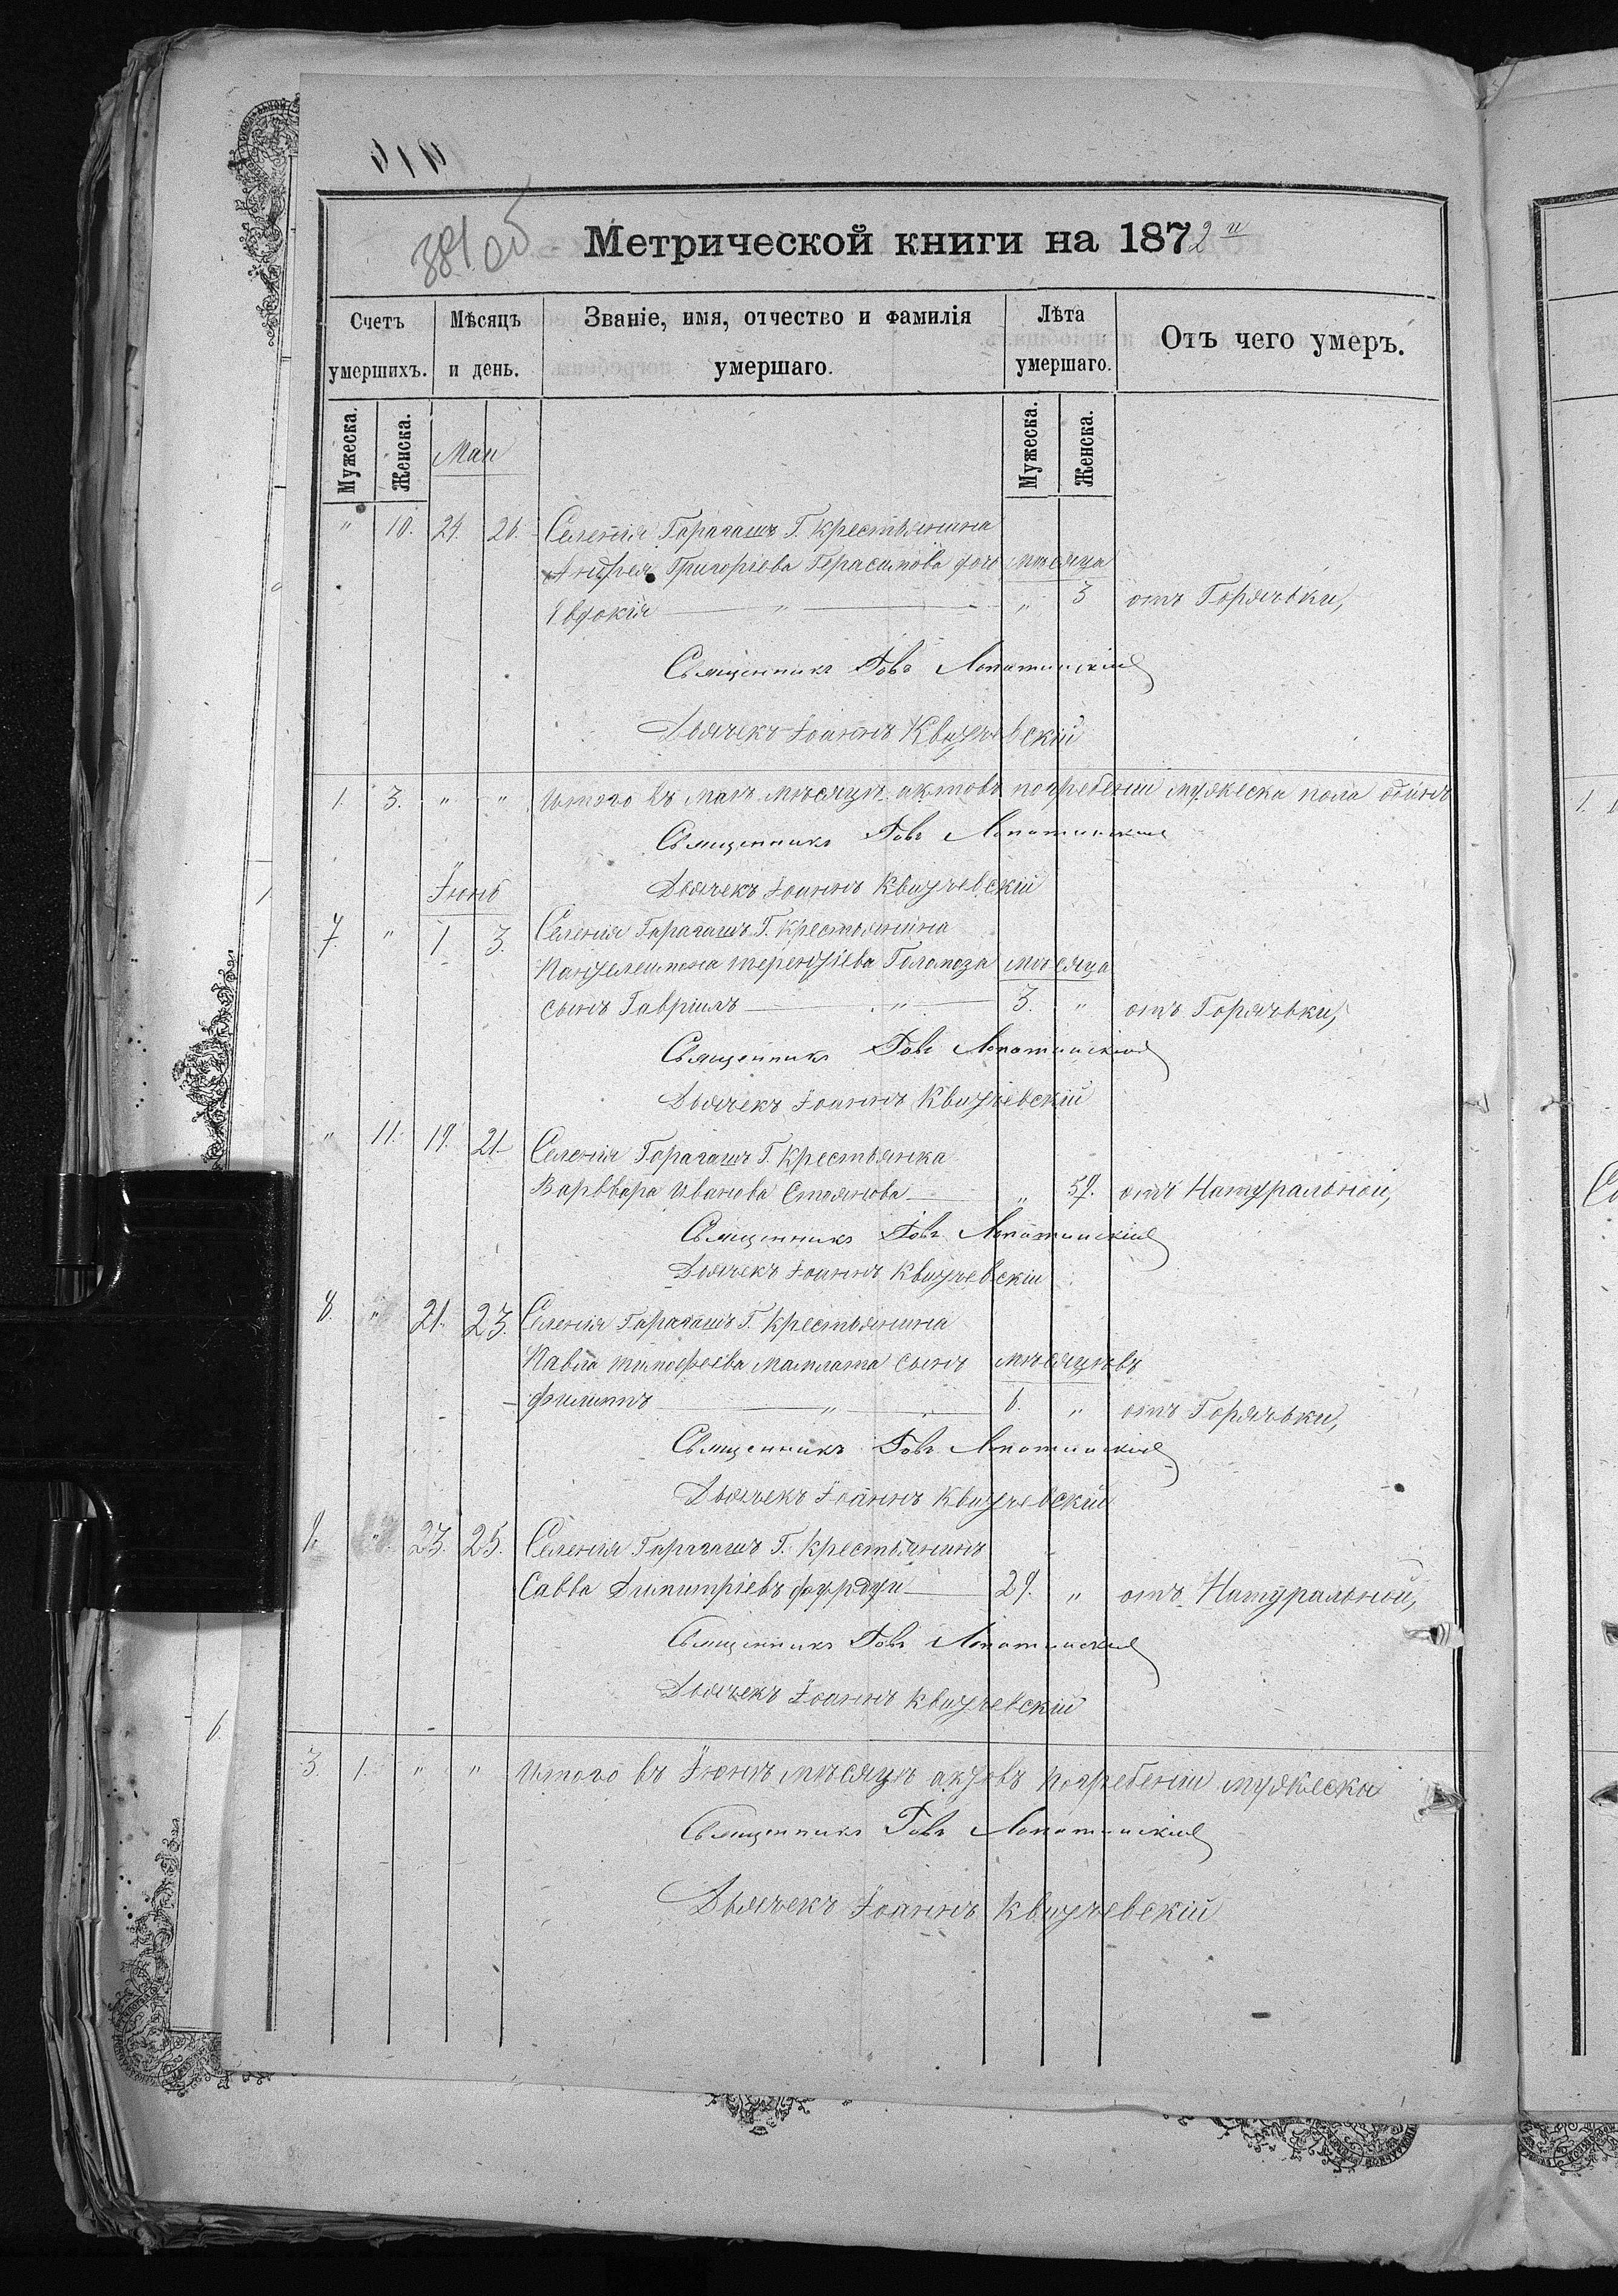 381 об
Метрической книги на 1872 и
Счетъ умершихъ.
Мѣсяцъ и день.
Званіе, имя, отчество и фамилія умершаго.
Лѣта умершаго.
Отъ чего умеръ.
Мужеска.
Женска.
Маи
Мужеска.
Женска.
" 10. 24. 26. Селенія Гарагашъ Г. Крестьянина
Андрея Григоріева Герасимова дочь мѣсяца
Евдокія " " 3 отъ Горячьки,
Священникъ Іовъ Лопатинскій
Дьячекъ Іоаннъ Квицчевскій
1. 3. " " Итого въ Маѣ мѣсяцѣ актовъ погребеніи мужеска пола одинъ
Священникъ Іовъ Лопатинскій
Дьячекъ Іоаннъ Квицчевскій
Іюнь
7 " 1. 3. Селенія Гарагашъ Г. Крестьянина
Пантелеимона терентіева Голомоза мѣсяца
сынъ Гавріилъ " 3. " отъ Горячьки,
Священникъ Іовъ Лопатинскій
Дьячекъ Іоаннъ Квицчевскій
" 11. 19. 21. Селенія Гарагашъ Г. Крестьянка
Варввара Иванова Стоянова " 59. отъ Натуральной,
Священникъ Іовъ Лопатинскій
Дьячекъ Іоаннъ Квицчевскій
8. " 21. 23. Селенія Гарагашъ Г. Крестьянина
Павла тимофеева мамлата сынъ мѣсяцѣвъ
Филиппъ " 6. " отъ Горячьки,
Священникъ Іовъ Лопатинскій
Дьячекъ Іоаннъ Квицчевскій
9. " 23. 25. Селенія Гарагашъ Г. Крестьянинъ
Савва Димитріевъ 29. " отъ Натуральной,
Священникъ Іовъ Лопатинскій
Дьячекъ Іоаннъ Квицчевскій
3. 1. " " Итого въ Іюнѣ мѣсяцѣ актовъ погребеніи мужеска
Священникъ Іовъ Лопатинскій
Дьячекъ Іоаннъ Квицчевскій